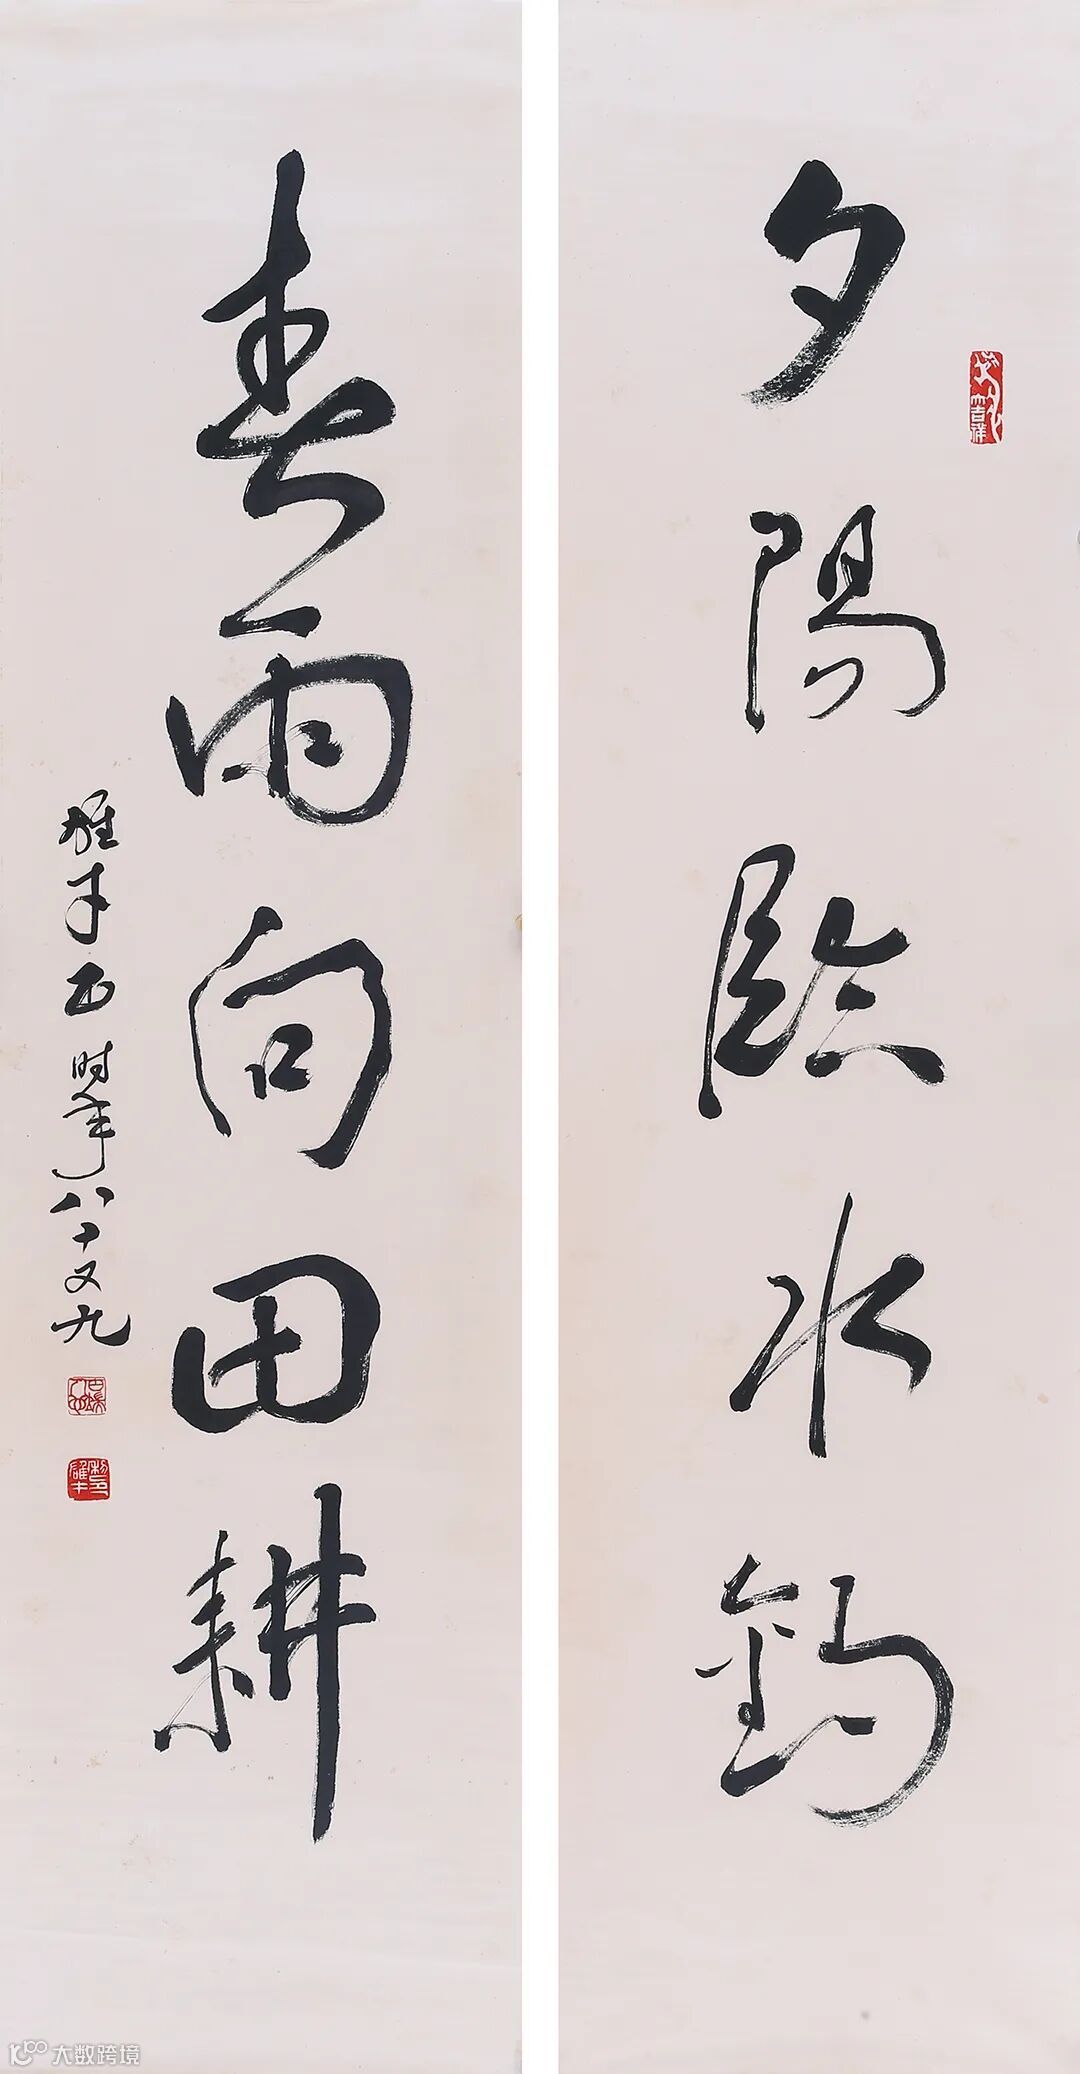 夕陽臨水釣
春雨向田耕
雄才書时年八十又九
大数跨境